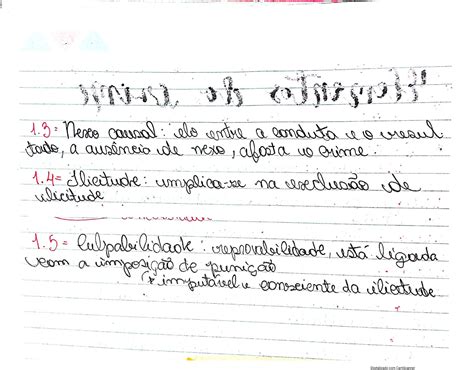 Elementos do crime
1.3= Nexo causal: elo entre a conduta e o resul
tado, a ausência de nexo, afasta o crime.
1.4= Ilicitude: implica-se na exclusão de
ilicitude
1.5= Culpabilidade: reprovabilidade, está ligada
com a imposição de punição
imputável e consciente da ilicitude
Digitalizado com CamScanner